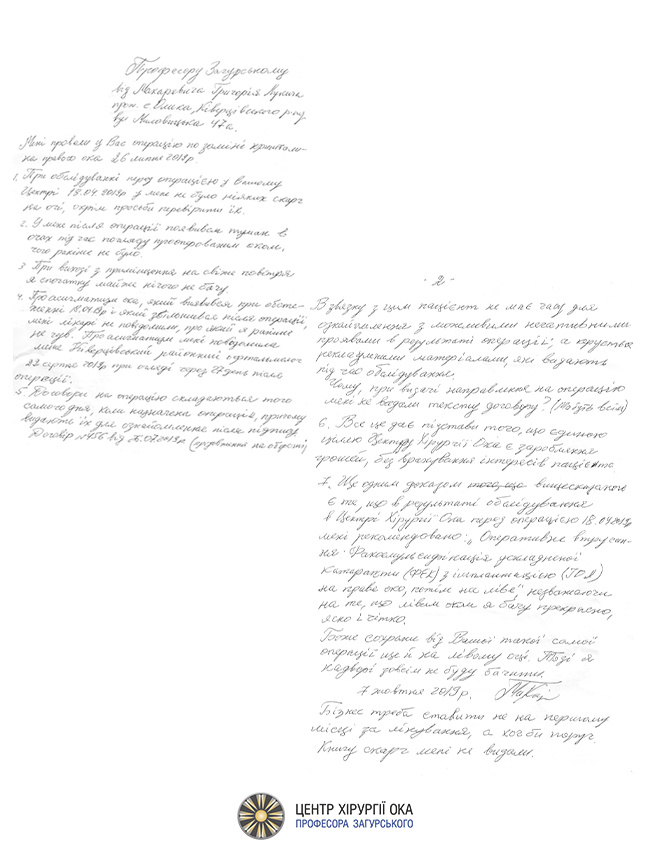 Професору Загурському
від Макаревича Григорія Лукича
прож. с Олика, Ківерцівського р-ну
вул Миловицька 47а.
Мені провели у Вас операцію по заміні кришталика
правого ока 26 липня 2019р.
1. При обслідуванні перед операцією у Вашому
Центрі 18.04.2019р у мене не було ніяких скарг
на очі, окрім просьби перевірити їх.
2. У мене після операції появився туман в
очах під час погляду прооперованим оком,
чого раніше не було.
3 При виході з приміщення на свіже повітря
я спочатку майже нічого не бачу.
4. Про астигматизм ока, який виявився при обсте-
женні 18.04.19р і який збільшився після операції,
мені лікарі не повідомили, про який я раніше
не чув. Про астигматизм мені повідомила
мене Ківерцівський районний
22 серпня 2019р при огляді через 27 день після
операції.
5. Договори на операцію складаються того
самого дня, коли назначена операція, причому
видають їх для ознайомлення після підпису
Договір від 26.07.2019р (продовження на обороті)
- 2 -
В звязку з цим пацієнт не має часу для
ознайомлення з можливими негативними
проявами в результаті операції, а користується
рекламними матеріалами, які видають
під час обслідування.
Чому, при видачі направлення на операцію
мені не видали тексту договору?
6. Все це дає підстави того, що єдиною
ціллю Центру Хірургії Ока є заробляння
грошей, без врахування інтересів пацієнта
7. Ще одним доказом вищесказаного
є те, що в результаті обслідування
в Центрі Хірургії Ока перед операцією 18.04.2019р
мені рекомендовано: „Оперативне втручан-
ня: Факоемульсифікація ускладненої
катаракти (ФЕК) з імплантацією (ІОЛ)
на праве око, потім на ліве", незважаючи
на те, що лівим оком я бачу прекрасно,
ясно і чітко.
Боже сохрани від Вашої такої самої
операції ще й на лівому оці. Тоді я
надворі зовсім не буду бачити.
7 жовтня 2019р.
Бізнес треба ставити не на першому
місці за лікування, а хоч би поруч.
Книгу скарг мені не видали.
ЦЕНТР ХІРУРГІЇ ОКА
ПРОФЕСОРА ЗАГУРСЬКОГО